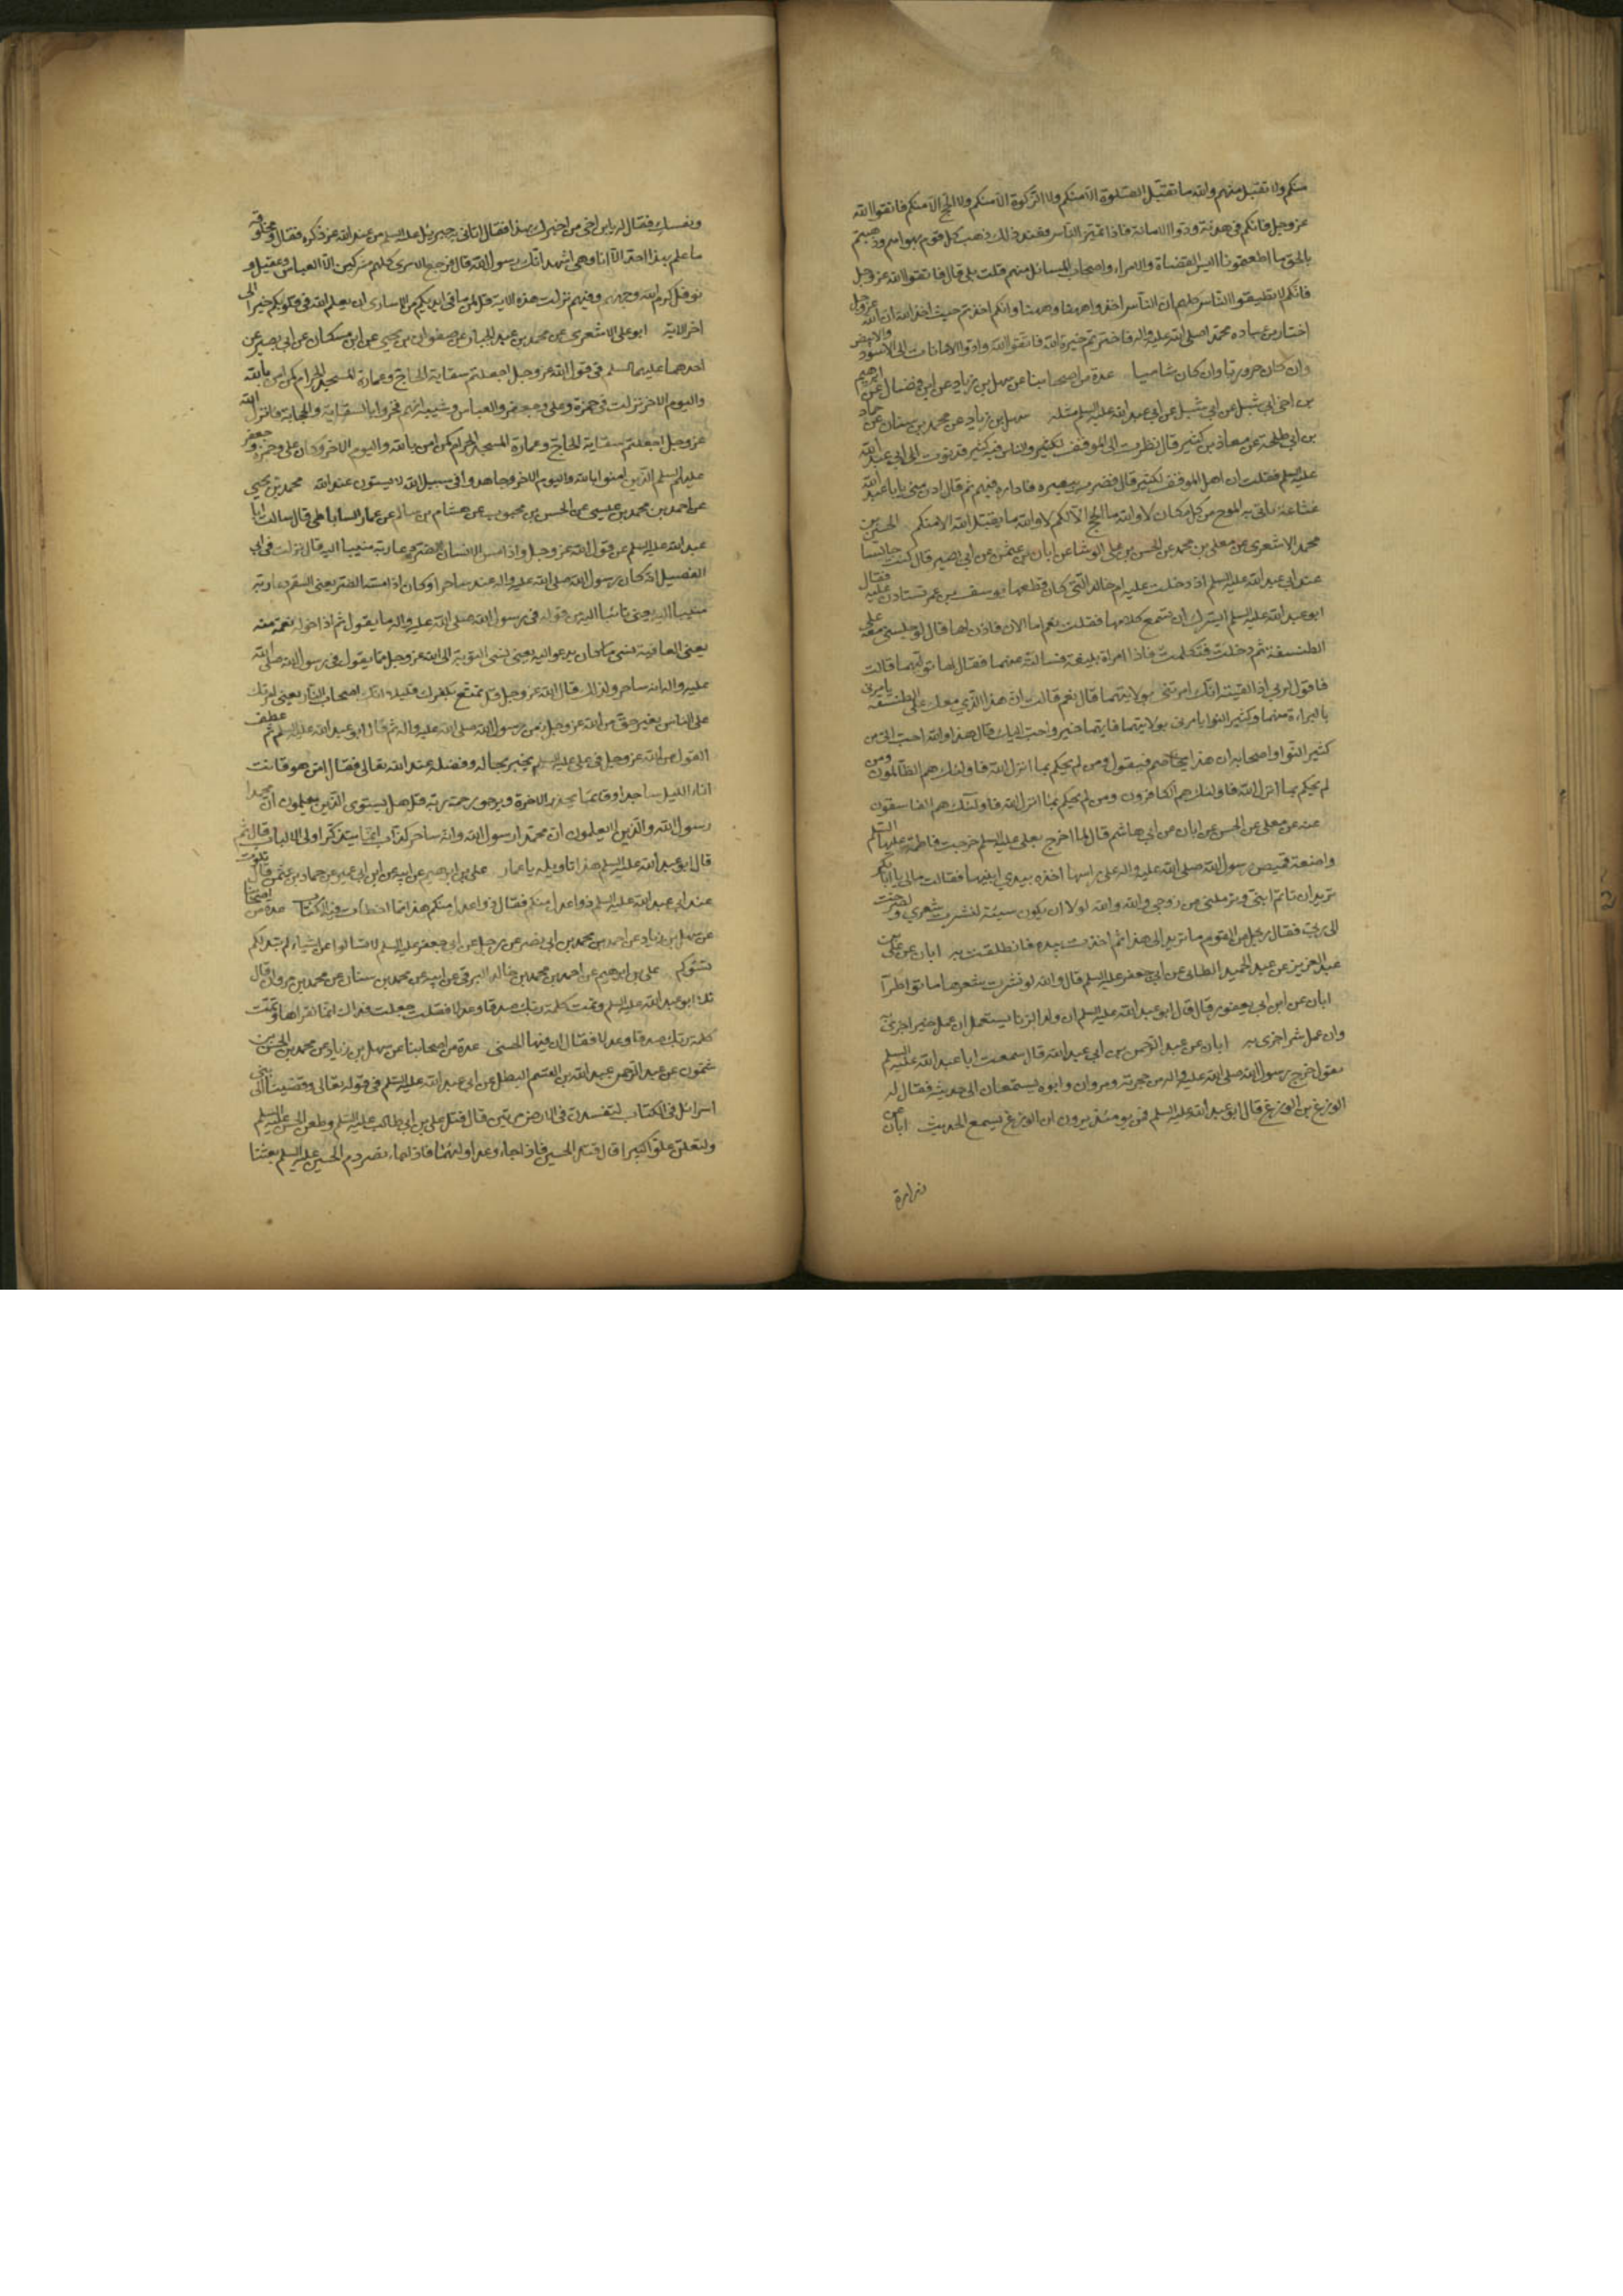 منكم ولا تقبل منهم والله ما تقبل الصلوة الا منكم ولا الزكوة الا منكم ولا الحج الا منكم فاتقوا الله
عز وجل فانكم في هدنة وادوا الامانة فاذا تميز الناس فعند ذلك ذهب كل قوم بهواهم وذهبتم
بالحق ما اطعتمونا اليس القضاة والامراء واصحاب المسائل منهم قلت بلى قال فاتقوا الله عز وجل
فانكم لا تطيقوا الناس كلهم ان الناس اخذوا ههنا وههنا وانكم اخذتم حيث اخذ الله ان الله عز وجل
اختار من عباده محمدا صلى الله عليه واله فاخترتم خيرة الله فاتقوا الله وادوا الامانات الى الاسود والابيض
وان كان حروريا وان كان شاميا عدة من اصحابنا عن سهل بن زياد عن ابن فضال عن ابرهيم
بن اخي ابي شبل عن ابي شبل عن ابي عبد الله عليه السلم مثله سهل بن زياد عن محمد بن سنان عن حماد
بن ابي طلحة عن معاذ بن كثير قال نظرت الى الموقف لكثير والناس فيه كثير فدنوت الى ابي عبد الله
عليه السلم فقلت ان اهل الموقف لكثير قال فضرب ببصره فاداره فيهم ثم قال ادن مني يا ابا عبد الله
غثاء ياتي به الموج من كل مكان لا والله ما الحج الا لكم لا والله ما يتقبل الله الا منكم الحسين بن
محمد الاشعري عن معلى بن محمد عن الحسن بن علي الوشا عن ابان بن عثمن عن ابي بصير قال كنت جالسا
عند ابي عبد الله عليه السلم اذ دخلت عليه ام خالد التي كان قطعها يوسف بن عمر تستاذن عليه فقال
ابو عبد الله عليه السلم ايسرك ان تسمع كلامها فقلت نعم اما الان فاذن لها قال واجلسني معه على
الطنفسة ثم دخلت فتكلمت فاذا امراة بليغة فسالته عنهما فقال لها توليهما قالت
فاقول لربي اذا لقيته انك امرتني بولايتهما قال نعم قالت ان هذا الذي معك على الطنفسة يامرني
بالبراءة منهما وكثير النوا يامرني بولايتهما فايهما خير واحب اليك قال هذا والله احب الي من
كثير النوا واصحابه ان هذا يخاصم فيقول ومن لم يحكم بما انزل الله فاولئك هم الظالمون ومن
لم يحكم بما انزل الله فاولئك هم الكافرون ومن لم يحكم بما انزل الله فاولئك هم الفاسقون
عنه عن معلى عن الحسن عن ابان عن ابي هاشم قال لما اخرج بعلي عليه السلم خرجت فاطمة عليها السلم
واضعة قميص رسول الله صلى الله عليه واله على راسها اخذه بيدي ابنيها فقالت مالي يا ابا بكر
تريد ان تاتم ابني وترملني من زوجي والله والله لولا ان يكون سيئة لنشرت شعري ولصرخت
الى ربي فقال رجل من القوم ما تريد الى هذا ثم اخذت بيده فانطلقت به ابان عن علي بن
عبد العزيز عن عبد الحميد الطائي عن ابي جعفر عليه السلم قال والله لو نشرت شعرها ماتوا طرا
ابان عن ابن ابي يعفور قال قال ابو عبد الله عليه السلم ان ولد الزنا يستعمل ان عمل خيرا جزئ به
وان عمل شرا جزى به ابان عن عبد الرحمن بن ابي عبد الله قال سمعت ابا عبد الله عليه السلم
يقول خرج رسول الله صلى الله عليه واله من حجرته ومروان وابوه يستمعان الى حديثه فقال له
الوزغ بن الوزغ قال ابو عبد الله عليه السلم فمن يومئذ يرون ان الوزغ يسمع الحديث ابان عن
زرارة
ونفسك فقال له يا ابن اخي من اخبرك بهذا فقال اتاني به جبرئيل عليه السلم من عند الله عز ذكره فقال ومحلوفه
ما علم بهذا احد الا انا وهي اشهد انك رسول الله قال فرجع الاسرى كلهم مشركين الا العباس وعقيل و
نوفل كرم الله وجوههم وفيهم نزلت هذه الاية قل لمن في ايديكم من الاسارى ان يعلم الله في قلوبكم خيرا الى
اخر الاية ابو علي الاشعري عن محمد بن عبد الجبار عن صفوان بن يحيى عن ابن مسكان عن ابي بصير عن
احدهما عليهما السلم في قول الله عز وجل اجعلتم سقاية الحاج وعمارة المسجد الحرام كمن امن بالله
واليوم الاخر نزلت في حمزة وعلي وجعفر والعباس وشيبة انهم فخروا بالسقاية والحجابة فانزل الله
عز وجل اجعلتم سقاية الحاج وعمارة المسجد الحرام كمن امن بالله واليوم الاخر وكان علي وحمزة وجعفر
عليهم السلم الذين امنوا بالله واليوم الاخر وجاهدوا في سبيل الله لا يستون عند الله محمد بن يحيى
عن احمد بن محمد بن عيسى عن الحسن بن محبوب عن هشام بن سالم عن عمار الساباطي قال سالت ابا
عبد الله عليه السلم عن قول الله عز وجل واذا مس الانسان الضر دعا ربه منيبا اليه قال نزلت في ابي
الفصيل انه كان رسول الله صلى الله عليه واله عنده ساحرا وكان اذا مسه الضر يعني السقم دعا ربه
منيبا اليه يعني تائبا اليه من قوله في رسول الله صلى الله عليه واله ما يقول ثم اذا خوله نعمة منه
يعني العافية نسي ما كان يدعو اليه يعني نسي التوبة الى الله عز وجل مما يقول في رسول الله صلى الله
عليه واله انه ساحر ولذلك قال الله عز وجل قل تمتع بكفرك قليلا انك من اصحاب النار يعني امرتك
على الناس بغير حق من الله عز وجل ومن رسول الله صلى الله عليه واله ثم قال ابو عبد الله عليه السلم ثم عطف
القول من الله عز وجل في علي عليه السلم يخبر بحاله وفضله عند الله تعالى فقال امن هو قانت
اناء الليل ساجدا وقائما يحذر الاخرة ويرجو رحمة ربه قل هل يستوي الذين يعلمون ان محمدا
رسول الله والذين لا يعلمون ان محمدا رسول الله وانه ساحر كذاب انما يتذكر اولي الالباب قال ثم
قال ابو عبد الله عليه السلم هذا تاويله يا عمار علي بن ابراهيم عن ابيه عن ابن ابي عمير عن حماد بن عثمن قال تلوت
عند ابي عبد الله عليه السلم ذوا عدل منكم فقال ذو عدل منكم هذا مما اخطات فيه الكتاب عدة من اصحابنا
عن سهل بن زياد عن احمد بن محمد بن ابي نصر عن رجل عن ابي جعفر عليه السلم لا تسالوا عن اشياء لم تبد لكم
تسؤكم علي بن ابرهيم عن احمد بن محمد بن خالد البرقي عن ابيه عن محمد بن سنان عن محمد بن مروان قال
تلا ابو عبد الله عليه السلم وتمت كلمة ربك صدقا وعدلا فقلت جعلت فداك انما نقراها وتمت
كلمة ربك صدقا وعدلا فقال ان فيها الحسنى عدة من اصحابنا عن سهل بن زياد عن محمد بن الحسن بن
شمون عن عبد الرحمن عبد الله بن القسم البطل عن ابي عبد الله عليه السلم في قوله تعالى وقضينا الى بني
اسرائل في الكتاب لتفسدن في الارض مرتين قال قتل علي بن ابي طالب عليه السلم وطعن الحسن عليه السلم
ولتعلن علوا كبيرا قال قتل الحسين فاذا جاء وعد اوليهما فاذا جاء نصر دم الحسين عليه السلم بعثنا